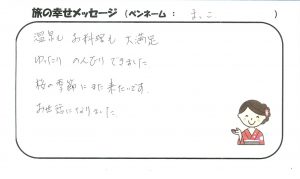 旅の幸せメッセージ (ペンネーム : まっこ )
温泉も お料理も 大満足
ゆったり のんびり できました
桜の季節にまた来たいです。
お世話になりました